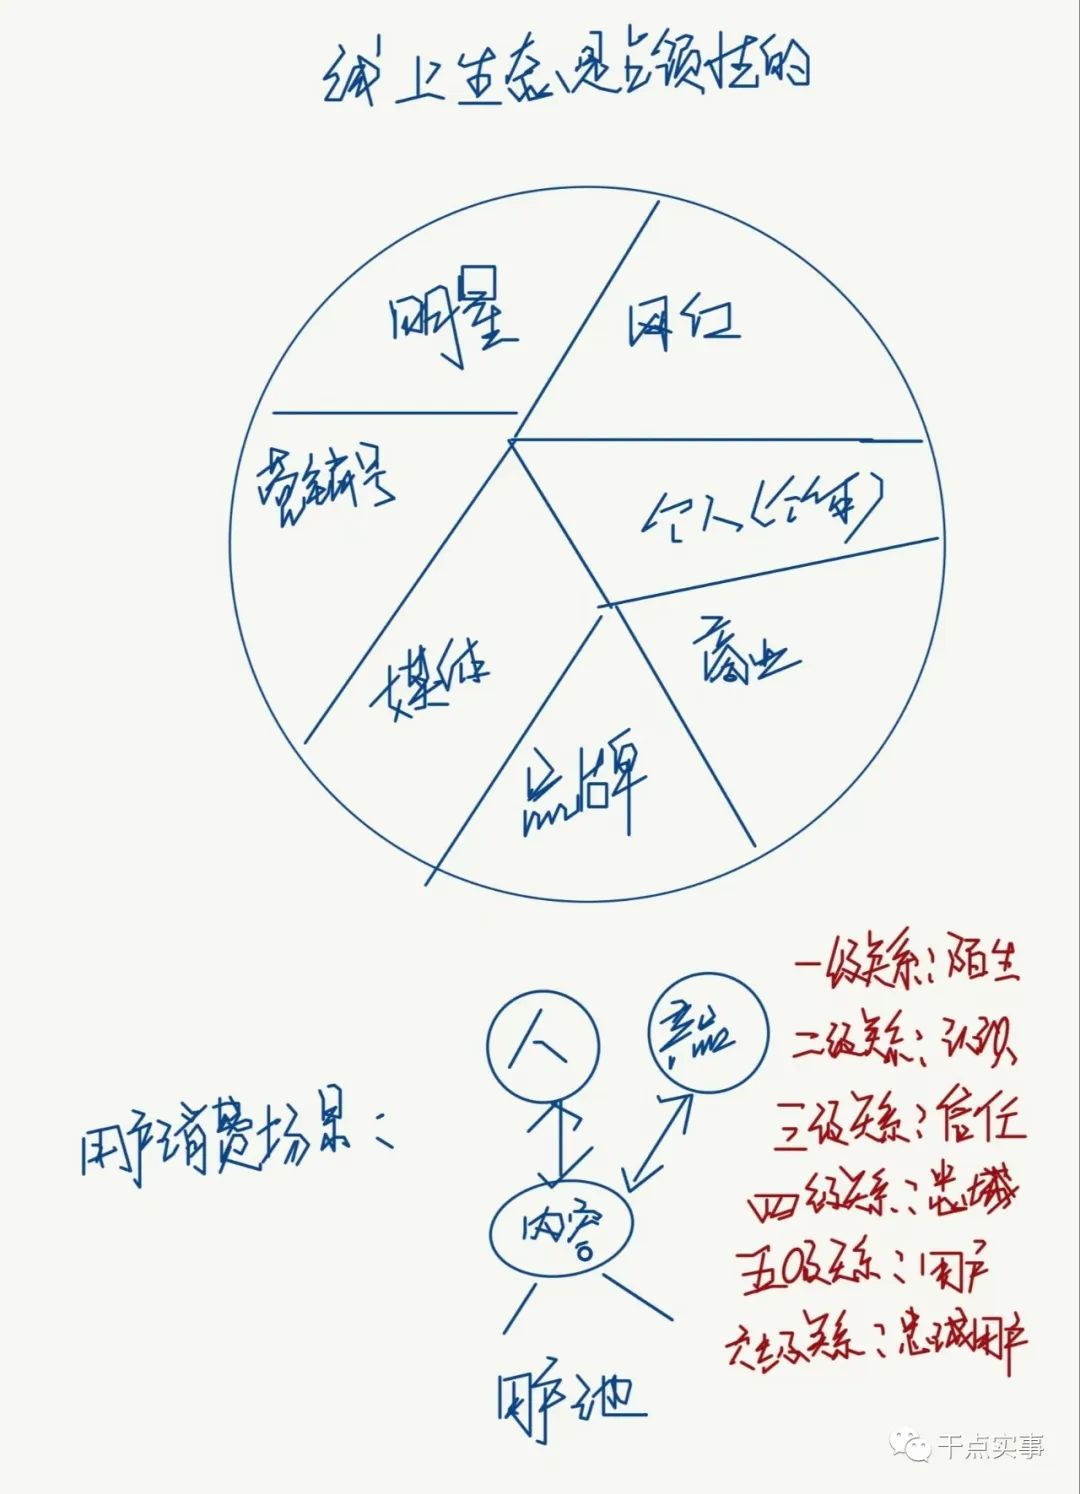 线上生态是占领性的
明星
网红
营销号
个人(合作)
媒体
商业
品牌
一级关系:陌生
人
产品
二级关系:认识
用户消费场景:
三级关系:信任
四级关系:忠诚
内容
五级关系:用户
六级关系:忠诚用户
用户池
干点实事